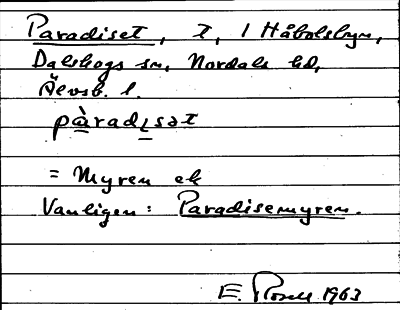 Paradiset, t, i Håbolsbyn,
Dalskogs sn, Nordals hd,
Älvsb. l.
pàradisət
= Myren ek
Vanligen: Paradisemyren.
E. Rosell 1963